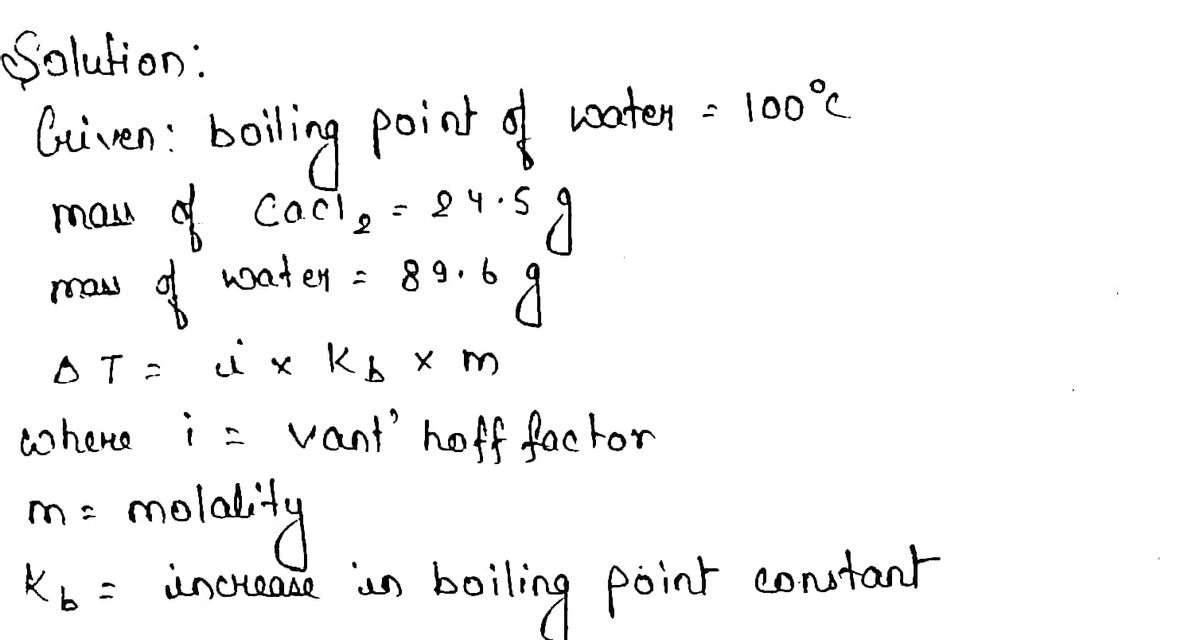 Solution:
Given: boiling point of water = 100°C
mass of CaCl₂ = 24.5 g
mass of water = 89.6 g
ΔT = i × Kb × m
where i = vant' hoff factor
m = molality
Kb = increase in boiling point constant